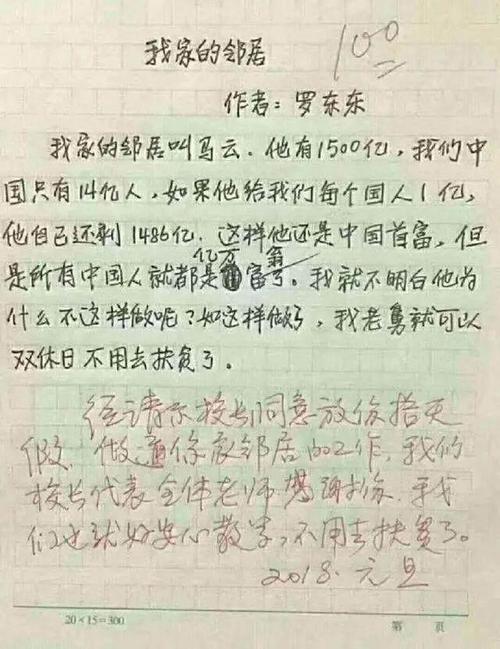 100
我家的邻居
作者：罗东东
我家的邻居叫马云．他有1500亿，我们中
国只有14亿人，如果他给我们每个国人1亿，
他自己还剩1486亿．这样他还是中国首富，但
是所有中国人就都是亿万富翁了。我就不明白他为
什么不这样做呢？如这样做了，我老舅就可以
双休日不用去扶贫了。
经请示校长同意放你搭天
假．做通你家邻居的工作．我们
校长代表全体老师感谢你．我
们也就好安心教学，不用去扶贫了。
2018．元旦
20×15=300
第 页